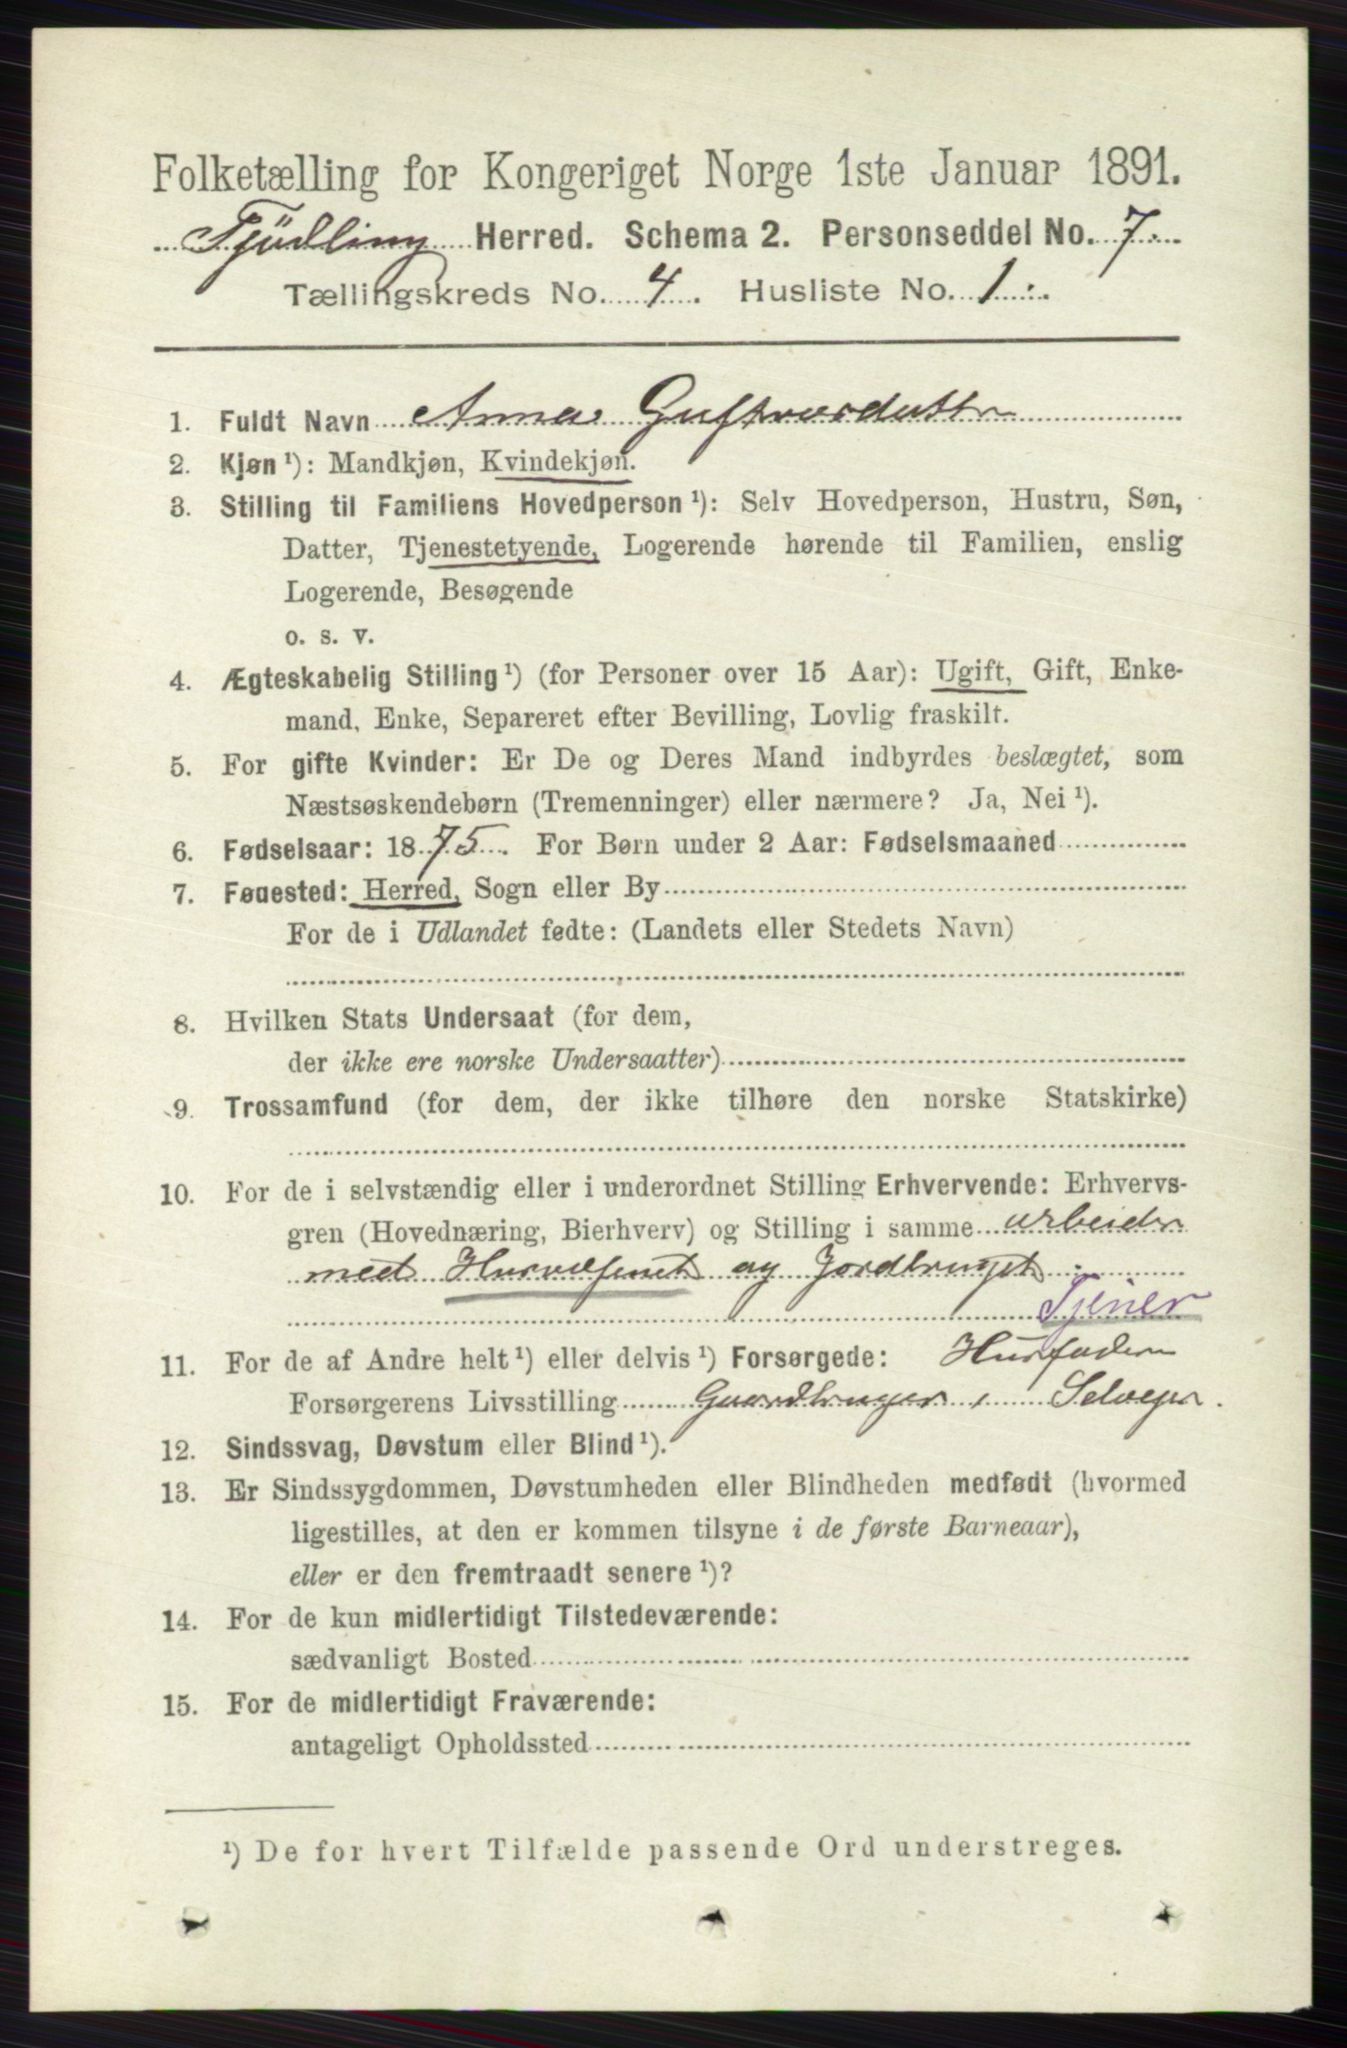 Folketælling for Kongeriget Norge 1ste Januar 1891.
Tjödling Herred. Schema 2. Personseddel No. 7.
Tællingskreds No. 4. Husliste No. 1.
1. Fuldt Navn Anna
2. Kjøn ¹): Mandkjøn, Kvindekjøn.
3. Stilling til Familiens Hovedperson ¹): Selv Hovedperson, Hustru, Søn,
Datter, Tjenestetyende, Logerende hørende til Familien, enslig
Logerende, Besøgende
o. s. v.
4. Ægteskabelig Stilling ¹) (for Personer over 15 Aar): Ugift, Gift, Enke-
mand, Enke, Separeret efter Bevilling, Lovlig fraskilt.
5. For gifte Kvinder: Er De og Deres Mand indbyrdes beslægtet, som
Næstsøskendebørn (Tremenninger) eller nærmere? Ja, Nei ¹).
6. Fødselsaar: 1875. For Børn under 2 Aar: Fødselsmaaned
7. Fødested: Herred, Sogn eller By
For de i Udlandet fødte: (Landets eller Stedets Navn)
8. Hvilken Stats Undersaat (for dem,
der ikke ere norske Undersaatter)
9. Trossamfund (for dem, der ikke tilhøre den norske Statskirke)
10. For de i selvstændig eller i underordnet Stilling Erhvervende: Erhvervs-
gren (Hovednæring, Bierhverv) og Stilling i samme arbeider
med Husvæsenet og Jordbruget.
Tjener
11. For de af Andre helt ¹) eller delvis ¹) Forsørgede: Husfaderen
Forsørgerens Livsstilling Gaardbruger, Selveger.
12. Sindssvag, Døvstum eller Blind ¹).
13. Er Sindssygdommen, Døvstumheden eller Blindheden medfødt (hvormed
ligestilles, at den er kommen tilsyne i de første Barneaar),
eller er den fremtraadt senere ¹)?
14. For de kun midlertidigt Tilstedeværende:
sædvanligt Bosted
15. For de midlertidigt Fraværende:
antageligt Opholdssted
¹) De for hvert Tilfælde passende Ord understreges.